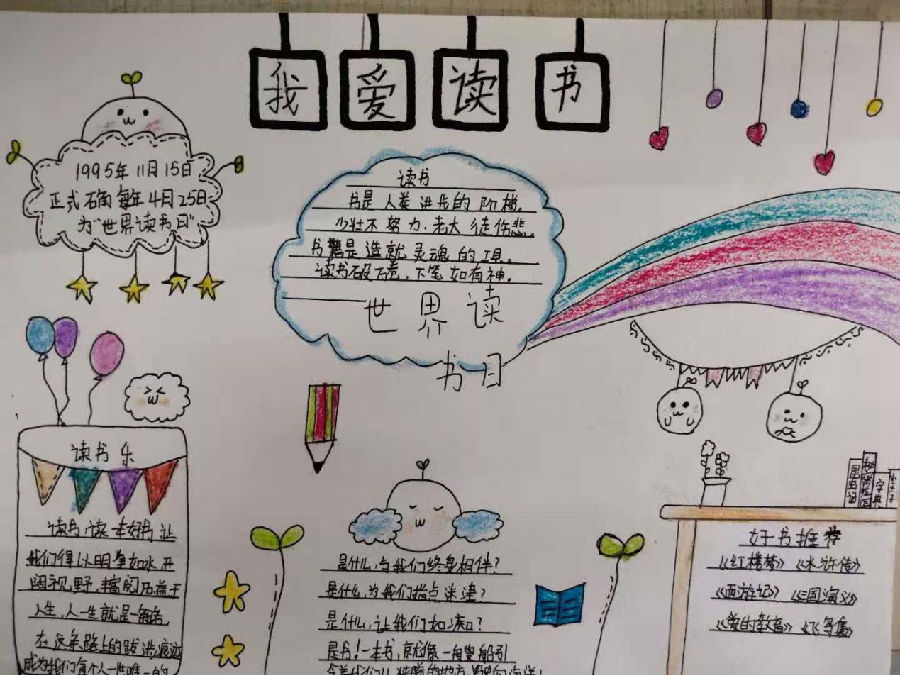 我爱读书
1995年11月15日
正式确每年4月25日
为"世界读书日"
读书
书是人类进步的阶梯。
少壮不努力，老大徒伤悲。
书籍是造就灵魂的工具。
读书破万卷，下笔如有神。
世界读
书日
读书乐
读书，读一本好书，让
我们得以明净如水，开
阔视野，
人生，人一生就是一
在
成为我们每个人一
是什么，与我们终身相伴？
是什么，为我们指点迷津？
是什么，让我们如
是书！一本书，就像一
字典
好书推荐
《红楼梦》《水浒传》
《西游记》《三国演义》
《爱的教育》《飞鸟集》